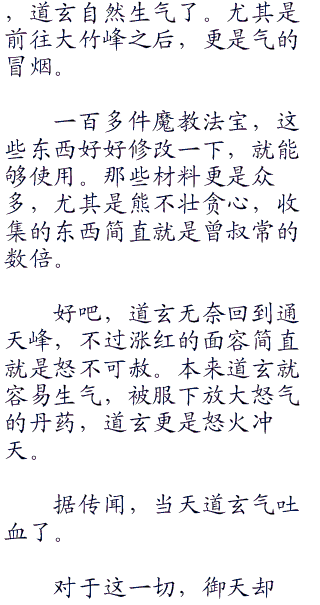 ，道玄自然生气了。尤其是
前往大竹峰之后，更是气的
冒烟。
一百多件魔教法宝，这
些东西好好修改一下，就能
够使用。那些材料更是众
多，尤其是熊不壮贪心，收
集的东西简直就是曾叔常的
数倍。
好吧，道玄无奈回到通
天峰，不过涨红的面容简直
就是怒不可赦。本来道玄就
容易生气，被服下放大怒气
的丹药，道玄更是怒火冲
天。
据传闻，当天道玄气吐
血了。
对于这一切，御天却